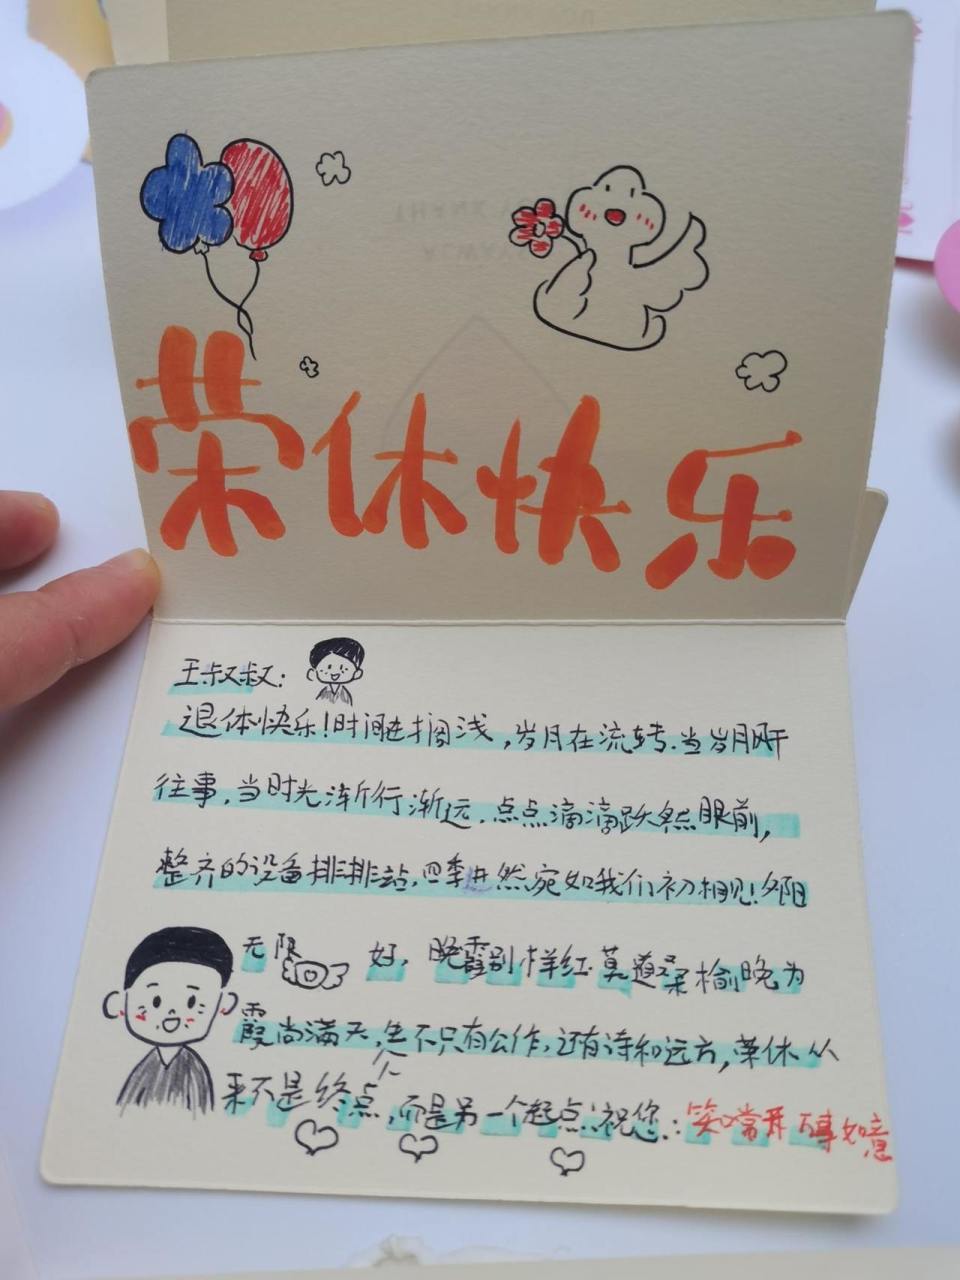 荣休快乐
王叔叔：
退休快乐！时间在搁浅，岁月在流转.当岁月
往事，当时光渐行渐远，点点滴滴跃然眼前，
整齐的设备排排站，四季井然宛如我们初相见！夕阳
无限 好，晚霞别样红.莫道桑榆晚为
霞尚满天，生不只有工作，还有诗和远方，荣休从
人
来不是终点，而是另一个起点！祝您：笑口常开 万事如意